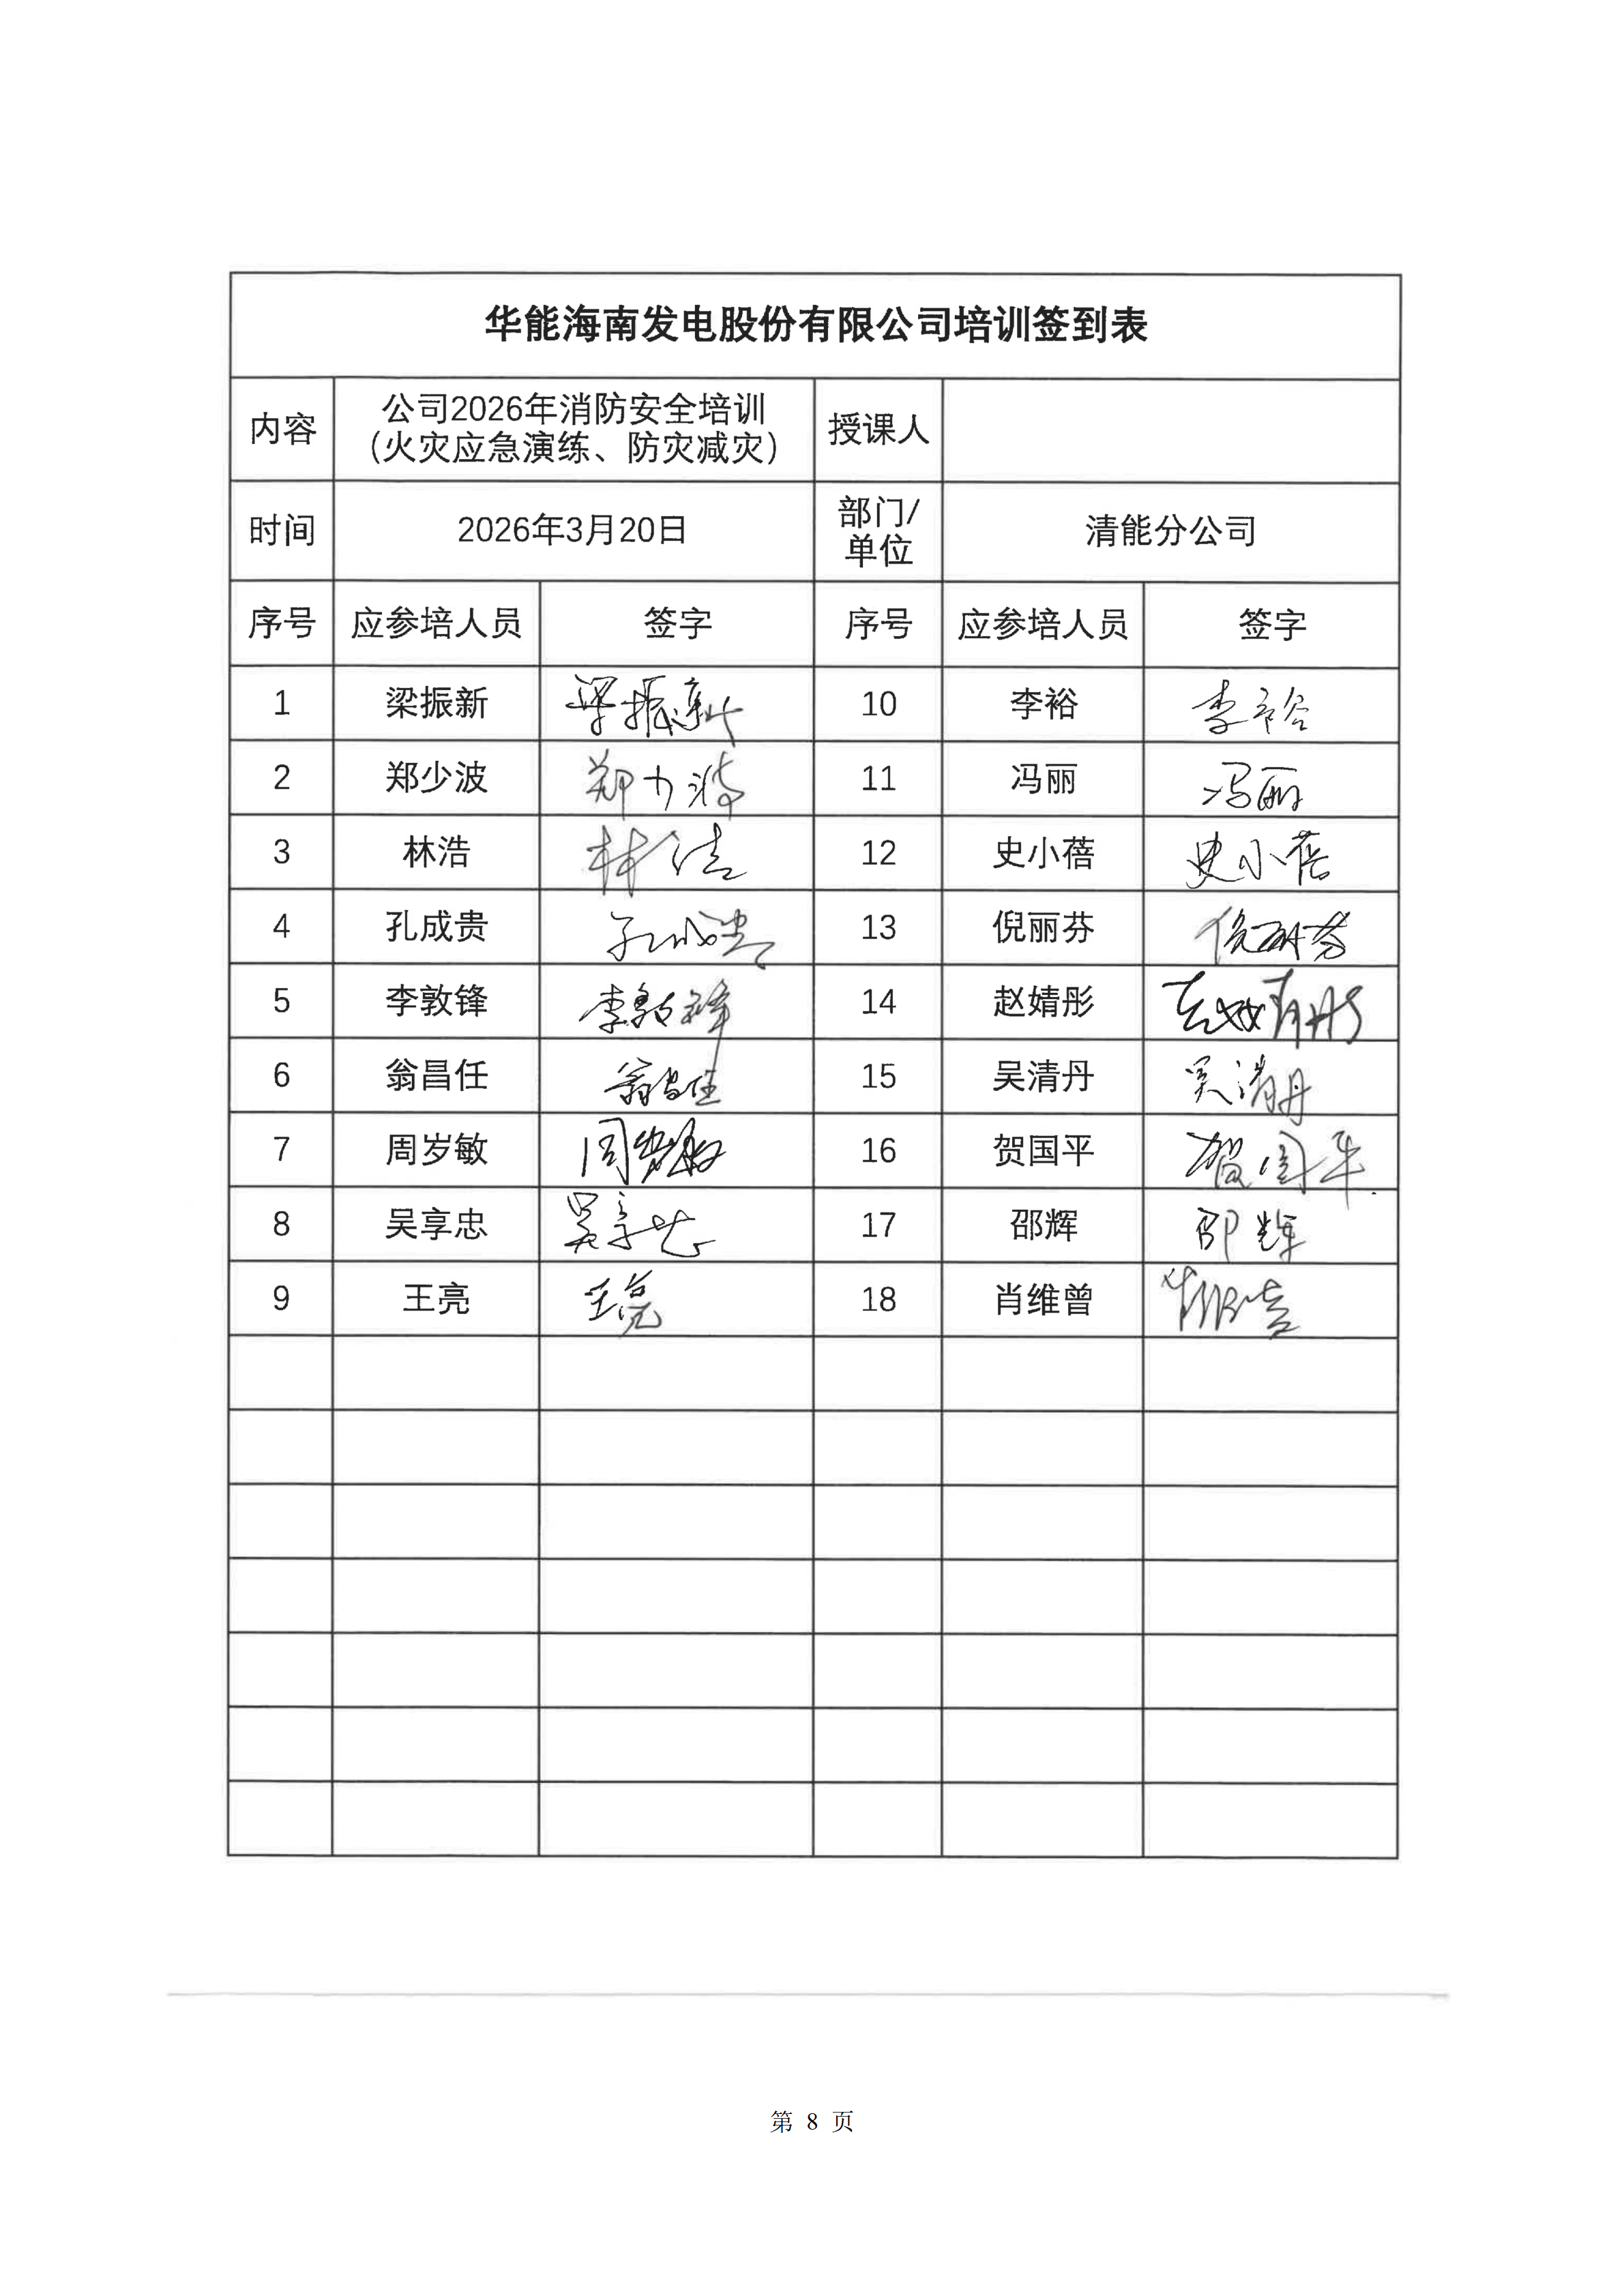 华能海南发电股份有限公司培训签到表
内容 公司2026年消防安全培训
(火灾应急演练、防灾减灾) 授课人
时间 2026年3月20日 部门/
单位 清能分公司
序号 应参培人员 签字 序号 应参培人员 签字
1 梁振新 梁振新 10 李裕 李裕
2 郑少波 郑少波 11 冯丽 冯丽
3 林浩 林浩 12 史小蓓 史小蓓
4 孔成贵 孔成贵 13 倪丽芬 倪丽芬
5 李敦锋 李敦锋 14 赵婧彤 赵婧彤
6 翁昌任 翁昌任 15 吴清丹 吴清丹
7 周岁敏 周岁敏 16 贺国平 贺国平
8 吴享忠 吴享忠 17 邵辉 邵辉
9 王亮 王亮 18 肖维曾
第 8 页